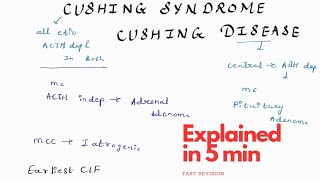 CUSHING SYNDROME
CUSHING DISEASE
all etio
ACTH dep &
In Both
central → ADH dep
mc
ACTH indep → Adrenal
Adenoma
mc
Pituitary
Adenoma
mcc → Iatrogenic
Earliest C/F
Explained
in 5 min
FAST REVISION